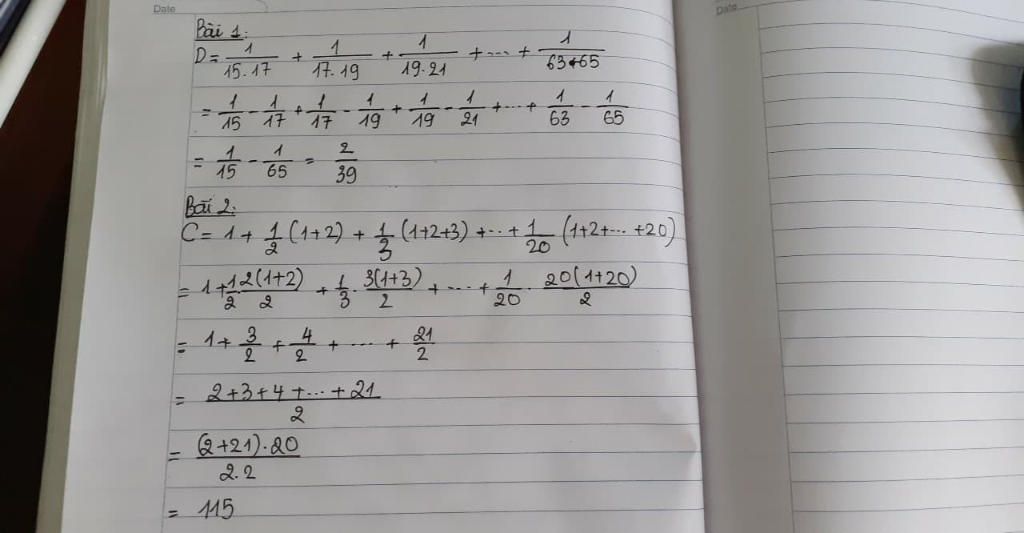 Date
Date
Bài 1:
D = 1/15.17 + 1/17.19 + 1/19.21 + ... + 1/63.65
= 1/15 - 1/17 + 1/17 - 1/19 + 1/19 - 1/21 + ... + 1/63 - 1/65
= 1/15 - 1/65 = 2/39
Bài 2:
C = 1 + 1/2 (1+2) + 1/3 (1+2+3) + ... + 1/20 (1+2+... +20)
= 1 + 1/2 . 2(1+2)/2 + 1/3 . 3(1+3)/2 + ... + 1/20 . 20(1+20)/2
= 1 + 3/2 + 4/2 + ... + 21/2
= 2+3+4+...+21/2
= (2+21).20/2.2
= 115